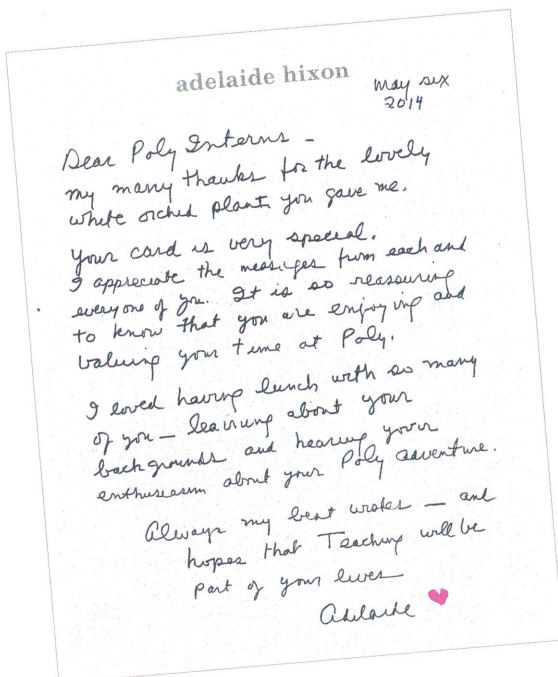 adelaide hixon
May six
2014
Dear Poly Interns -
My many thanks for the lovely
white orchid plant you gave me.
Your card is very special.
I appreciate the messages from each and
everyone of you. It is so reassuring
to know that you are enjoying and
valuing your time at Poly.
I loved having lunch with so many
of you — learning about your
backgrounds and hearing your
enthusiasm about your Poly adventure.
Always my best wishes — and
hopes that Teaching will be
part of your lives
Adelaide